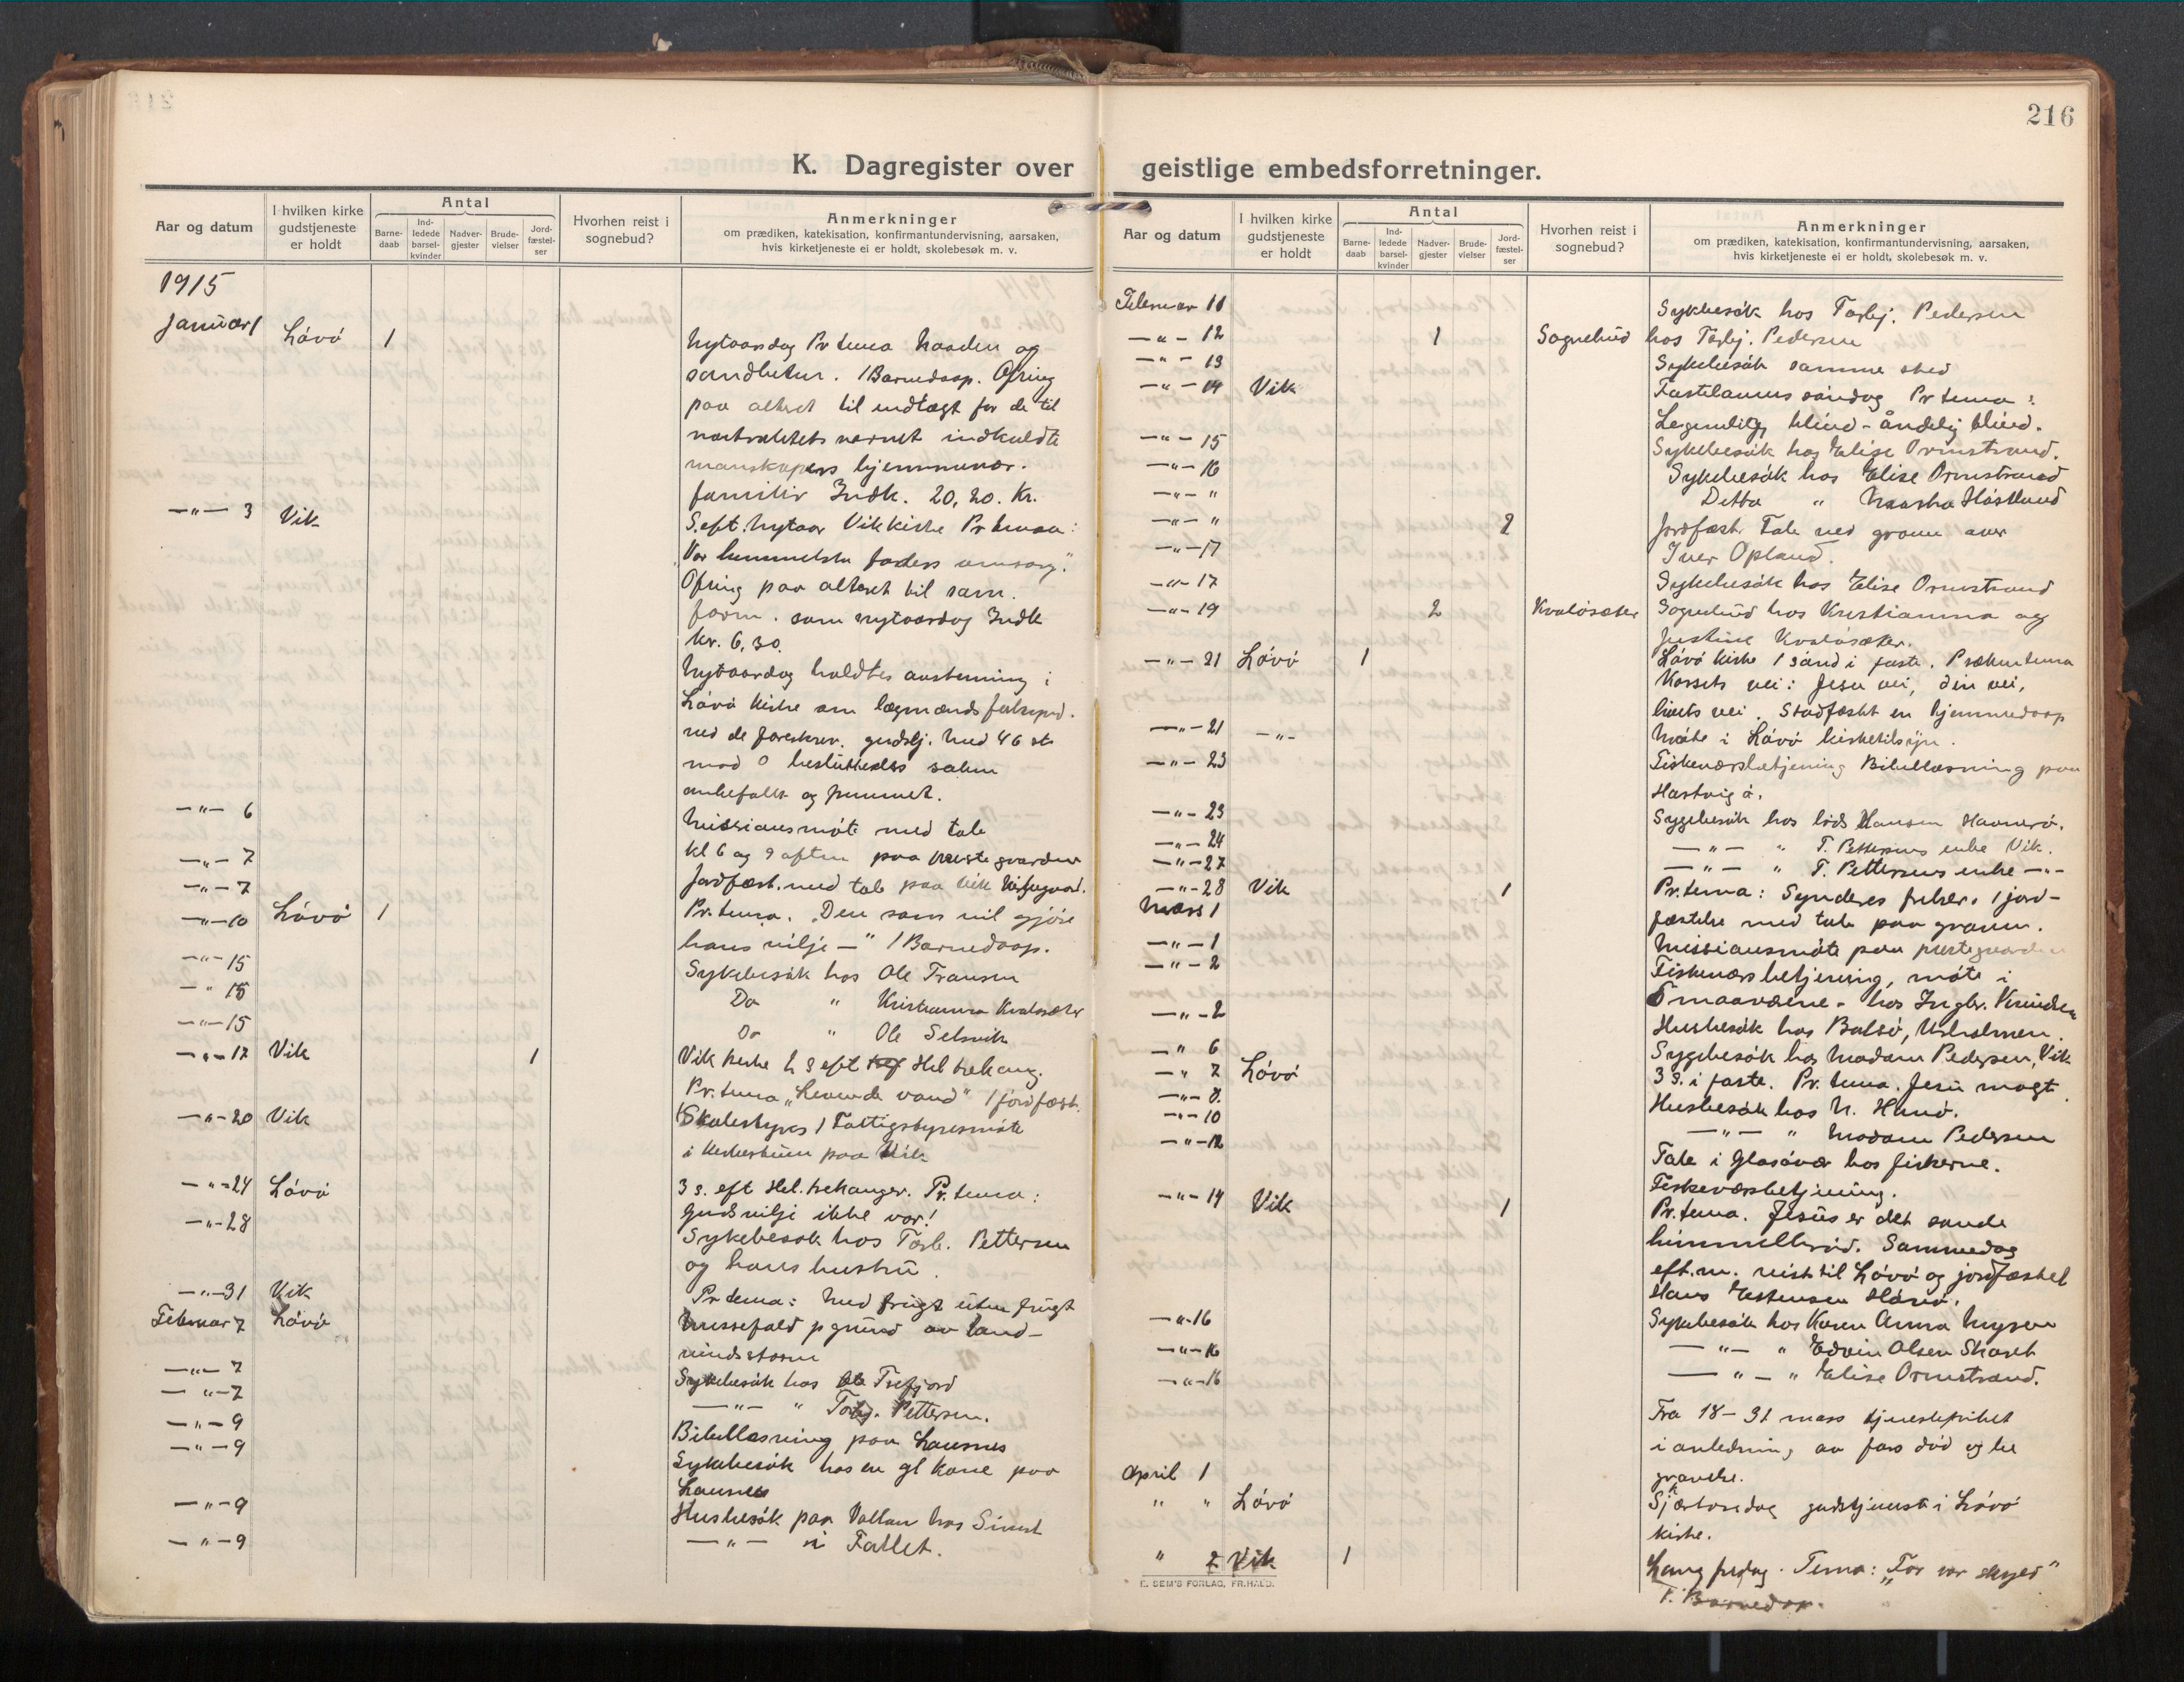 216
K. Dagregister over geistlige embedsforretninger.
Aar og datum
I hvilken kirke gudstjeneste er holdt
Antal
Barne-daab
Ind-ledede barsel-kvinder
Nadver-gjester
Brude-vielser
Jord-fæstel-ser
Hvorhen reist i sognebud?
Anmerkninger
om prædiken, katekisation, konfirmantundervisning, aarsaken,
hvis kirketjeneste ei er holdt, skolebesøk m. v.
1915
Januar 1 Løvø 1 Nytaarsdag Pr tema Naaden og
sandheten. 1 Barnedaap. Ofring
paa alteret til indtægt for de til
nøitralitetsvernet indkaldte
manskapers hjemmevær.
familier Indk. 20,20. Kr.
—"— 3 Vik S. eft. nytaar Vik kirke Pr temaa:
"Vor himmelske faders omsorg."
Ofring paa alteret til sam.
form. som nytaarsdag Indk
kr. 6,30.
Nytaarsdag holdtes avstemning i
Løvø kirke om lægmænds
ved de foreskrev. gudstj. Med 46 st.
mod 0 besluttedes saken
anbefalt og fremmet.
—"— 6 Missionsmøte med tale
kl 6 og 9 aften paa prestegaarden
—"— 7 Jordfæst. med tale paa Vik kirkegaard.
—"— 7
—"— 10 Løvø 1 Pr. tema. "Den som vil gjøre
hans vilje —" 1 Barnedaap.
—"— 15 Sykebesøk hos Ole Fransen
— " 15 Do " Kristianna Kvaløsæter
—"— 15 Do " Ole Selsvik
—"— 17 Vik 1 Vik kirke 2 S eft Hel trekong.
Pr. tema "Levende vand" 1 jordfæst.
—"— 20 Vik Skolestyres / Fattigstyresmøte
i kirkestuen paa Vik
—"— 24 Løvø 3 s. eft Hel. trekonger. Pr. tema:
Guds vilje ikke vor!
—"— 28 Sykebesøk hos Torb. Pettersen
og hans hustru.
—"— 31 Vik Pr tema: Med frugt uten frugt
Februar 7 Løvø Messefald p grund av land-
vindsstorm
—"— 7 Sykebesøk hos Ole Trefjord
—"— 7 —"— " Torbj. Pettersen.
—"— 9 Bibellæsning paa Lausnes
—"— 9 Sykebesøk hos en gl kone paa
Lausnes
—"— 9 Husbesøk paa Vallan hos Sivert
—"— 9 —"— i Fallet.
Aar og datum
I hvilken kirke gudstjeneste er holdt
Antal
Barne-daab
Ind-ledede barsel-kvinder
Nadver-gjester
Brude-vielser
Jord-fæstel-ser
Hvorhen reist i sognebud?
Anmerkninger
om prædiken, katekisation, konfirmantundervisning, aarsaken,
hvis kirketjeneste ei er holdt, skolebesøk m. v.
Februar 11 Sykebesøk hos Torbj. Pedersen
—"— 12 1 Sognebud hos Torbj. Pedersen
—"— 13 Sykebesøk samme sted
—"— 14 Vik Fastelavns søndag Pr tema:
Legemlig blind - åndelig blind.
—"— 15 Sykebesøk hos Elise Ormstrand.
—"— 16 Sykebesøk hos Elise Ormstrand
—"— " Detto " Haastland
—"— " 2 Jordfæst. Tale ved graven over
—"— 17 Iver Opland.
—"— 17 Sykebesøk hos Elise Ormstrand
—"— 19 2 Kvaløsæter Sognebud hos Kristianna og
Justine Kvaløsæter.
—"— 21 Løvø 1 Løvø kirke 1 sønd i faste. Præken tema
Korsets vei: Jesu vei, din vei,
livets vei. Stadfæstet en hjemmedaap
—"— 21 —"— Møte i Løvø kirketilsyn.
—"— 23 Fiskeværsbetjening Bibellæsning paa
Hartvigø.
—"— 23 Sygebesøk hos Hansen Havnerø.
—"— 24 —"— " T. Pettersens enke Vik.
—"— 27 —"— " T. Pettersens enke —"—
—"— 28 Vik 1 Pr. tema: Synderes frelser. 1 jord-
fæstelse med tale paa graven.
Mars 1 Missionsmøte paa prestegaarden
—"— 1 Fiskeværsbetjening, møte i
—"— 2 Smaaværene - hos Ingbr. Knudsen
—"— 2 Husbesøk hos Balsø,
—"— 6 Sygebesøk hos Madam Pedersen, Vik
—"— 7 Løvø 3 s. i faste. Pr. tema. Jesu magt.
—"— 8. Husbesøk hos N. Hanø.
—"— 10 —"— " Madam Pedersen
—"— 12 Tale i Glasøvær hos fiskerne.
Fiskeværsbetjening.
—"— 14 Vik 1 Pr. tema. Jesus er det sande
himmelbrød. Sammedag
eft.m. reist til Løvø og jordfæstet
Hans Estensen Hanø.
—"— 16 Sykebesøk hos Karen Anna Myren
—"— 16 —"— " Edvin Olsen Skaret
—"— 16 —"— " Elise Ormstrand.
Fra 18 - 31 mars tjenestefrihet
i anledning av fars død og be
gravelse.
April 1
" " Løvø Skjærtorsdag gudstjeneste i Løvø
kirke.
" 2 Vik 1 Langfredag. Tema: "For vor skyld"
1. Barnedaap.
E. SEM'S FORLAG, FR.HALD.